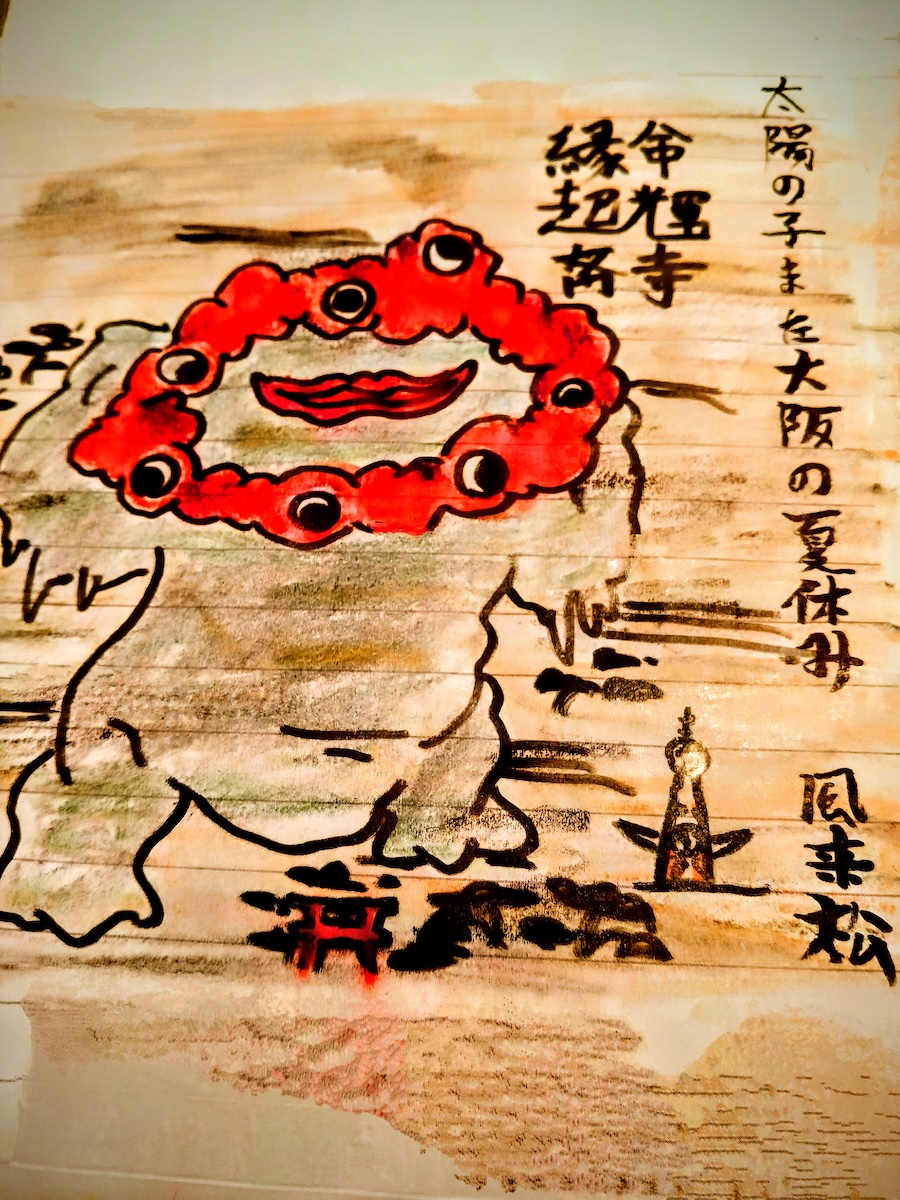 太陽の子また大阪の夏休み
風来松
命輝寺
縁起